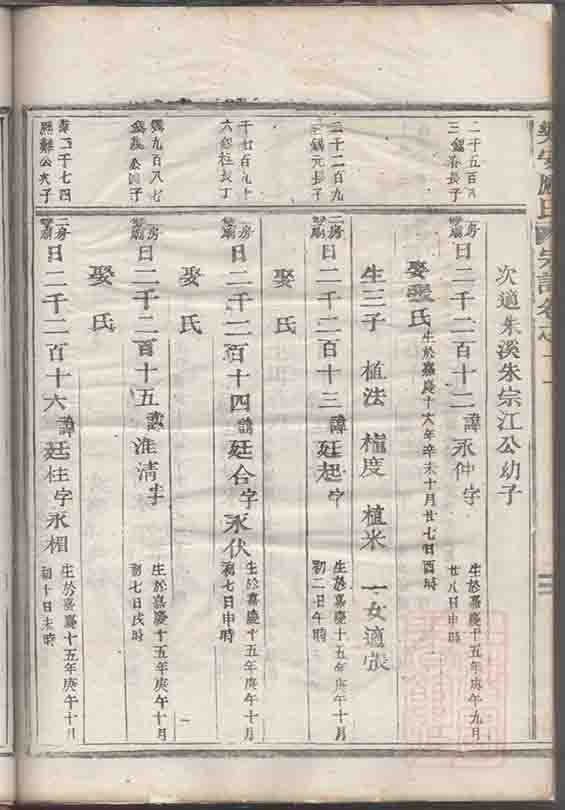 次適朱溪朱宗江公幼子
二千五百八
三 長子
二房
日二千二百十二諱永仲字
生於嘉慶十五年庚午九月
廿八日申時
娶 氏
生於嘉慶十六年辛未十月廿七日酉時
生三子 植法 植度 植米 一女適張
二千二百九
元長子
二房
日二千二百十三諱廷起字
生於嘉慶十五年庚午十月
初二日午時
娶氏
千七百九十
六 柱長丁
二房
日二千二百十四諱廷合字永伏
生於嘉慶十五年庚午十月
初七日申時
娶氏
九百八七
日二千二百十五諱淮清字
生於嘉慶十五年庚午十月
初七日戌時
娶氏
二千七四
公次子
二房
日二千二百十六諱廷柱字永相
生於嘉慶十五年庚午十月
初十日未時